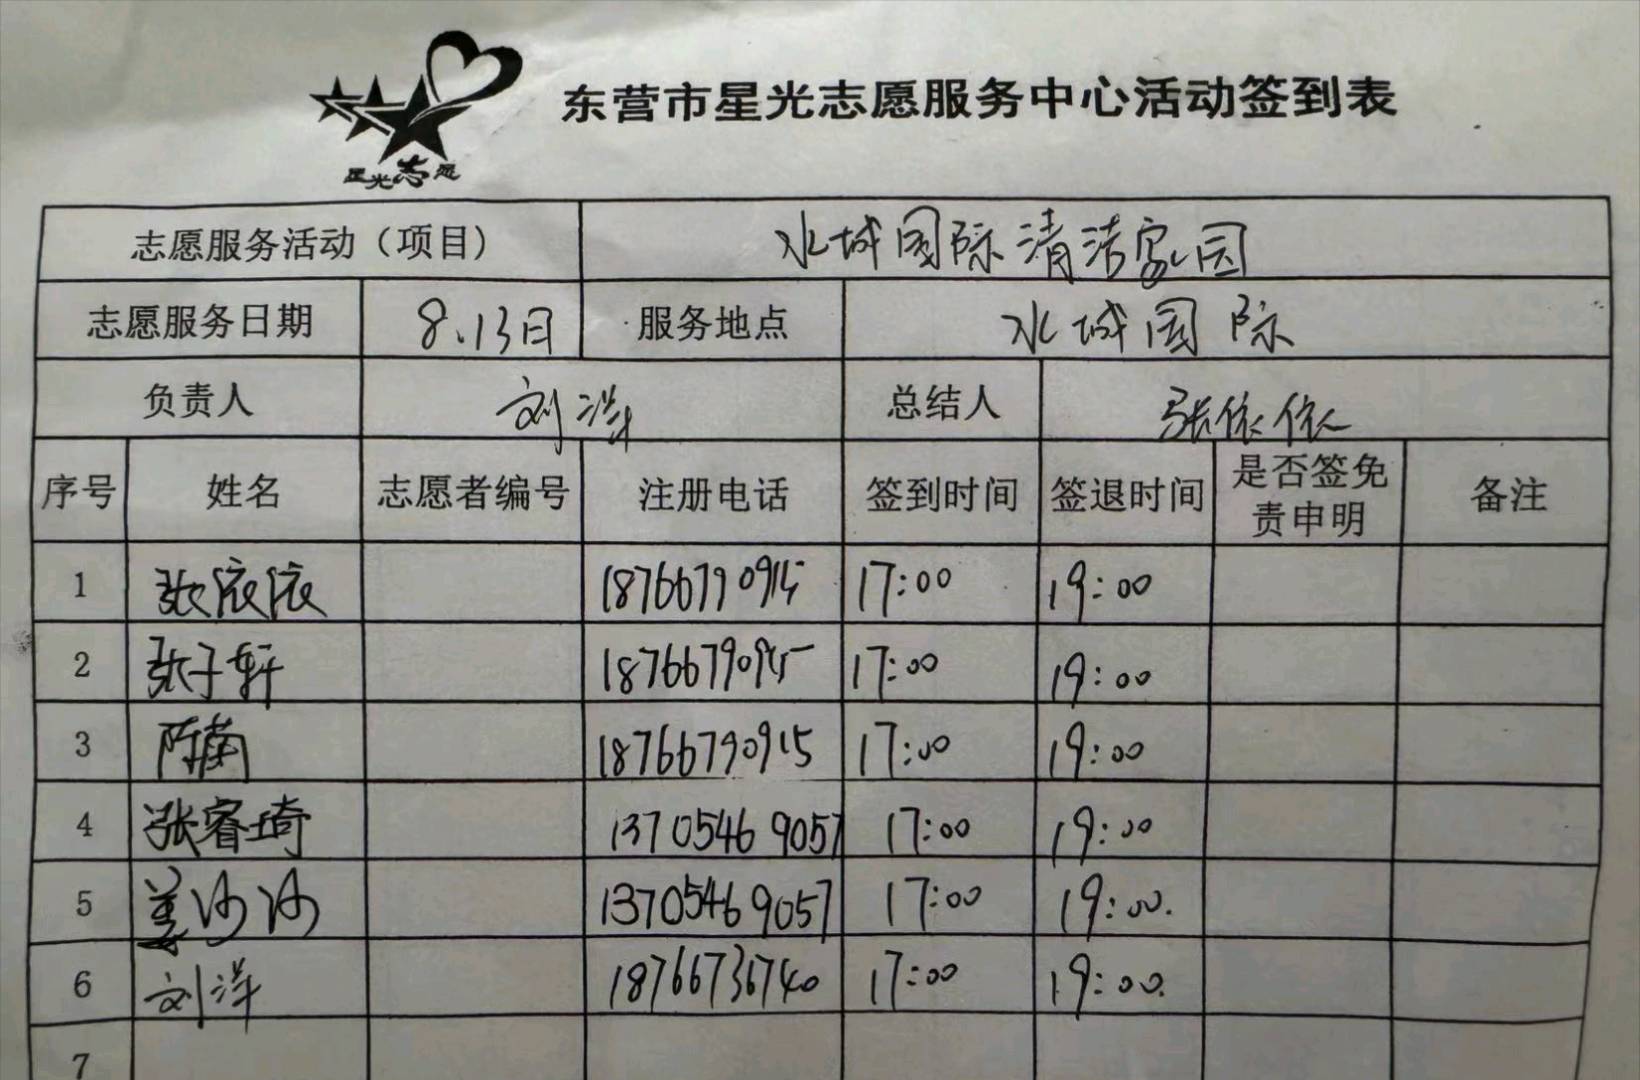 东营市星光志愿服务中心活动签到表
星光志愿
志愿服务活动（项目） 水城国际清洁家园
志愿服务日期 8.13日 服务地点 水城国际
负责人 刘洋 总结人 张依依
序号 姓名 志愿者编号 注册电话 签到时间 签退时间 是否签免责申明 备注
1 张依依 18766790915 17:00 19:00
2 张子轩 18766790915 17:00 19:00
3 陈菊 18766790915 17:00 19:00
4 张睿琦 13705469057 17:00 19:00
5 姜沙沙 13705469057 17:00 19:00.
6 刘洋 18766736740 17:00 19:00.
7